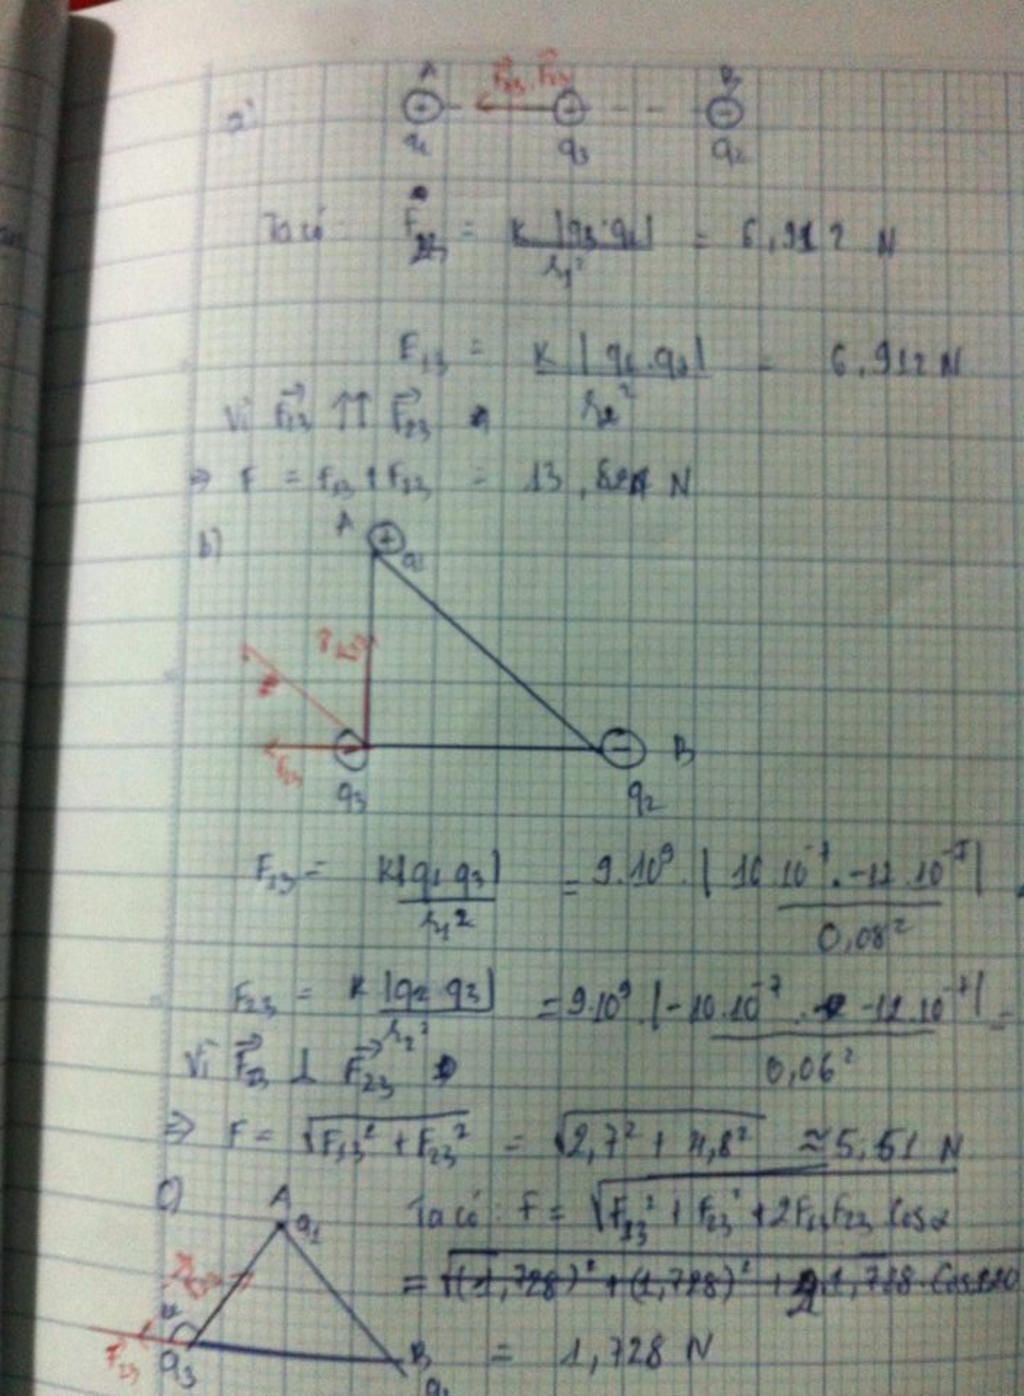 A F⃗13 F⃗23 B
q1 q3 q2
Ta có: F23 = K|q3.q2| / r1² = 6,912 N
F13 = K|q1.q3| / r2² = 6,912 N
Vì F⃗13 ↑↑ F⃗23
⇒ F = F13 + F23 = 13,824 N
b) A q1
F13
F23
q3 q2 B
F13 = K|q1 q3| / r1² = 9.10⁹.|10.10⁻⁷.-12.10⁻⁷| / 0,08²
F23 = K|q2 q3| / r2² = 9.10⁹.|-10.10⁻⁷.-12.10⁻⁷| / 0,06² =
Vì F⃗13 ⊥ F⃗23
⇒ F = √(F13² + F23²) = √(2,7² + 4,8²) ≈ 5,51 N
c) A q1 Ta có: F = √(F13² + F23² + 2F13F23 Cosα)
= √((1,728)² + (1,728)² + 2.1,728.Cos120
α F23 q3 B = 1,728 N